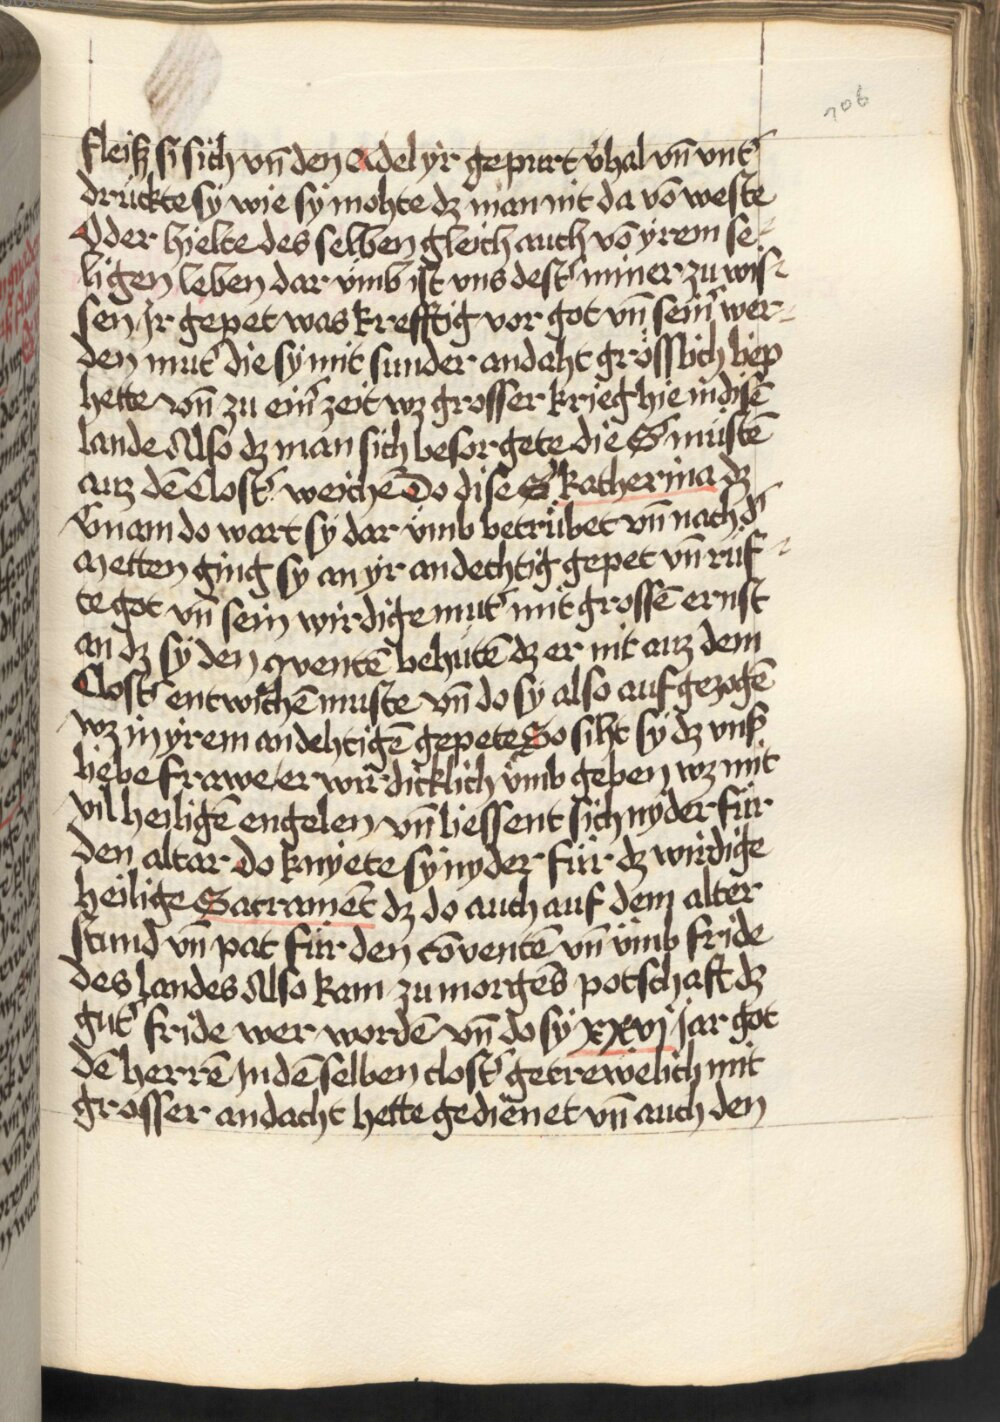 708
fleiß si sich vn̄ den Adel yr gepurt v̓hal vn̄ vnt̓
drückte sy wie sy mohte dz man nit da vō weste
Oder hielte des selben gleich auch vō yrem se⸗
ligen leben dar vmb ist vns dest̓ miner zu wis⸗
sen Ir gepet was krefftig vor got vn̄ sein̓ wer⸗
den mut̓ die sy mit sunder andaht grösslich liep
hette vn̄ zu ein̓ zeit wz grosser krieg hie in disē
lande Also dz man sich besorgete die S̓ müstē
auz dē Clost̓ weichē Do dise S̓ katherina dz
v̓nam do wart sy dar vmb betrübet vn̄ nach d̓
Metten ging sy an yr andechtig gepet vn̄ rüf⸗
te got vn̄ sein wirdige mut̓ mit grossē ernst
an dz sy den ꝯventē behütē dz er nit auz dem
Clost̓ entwichē muste vn̄ do sy also auf gezogē
wz in yrem andehtigē gepete So siht sy dz vnß
liebe frawe er wirdicklich vmb geben wz mit
vil heiligē engelen vn̄ liessent sich nyder für
den altar do knyete sy nyder für dz wirdige
heilige Sacramēt dz do auch auf dem alter
stund vn̄ pat für den cōventē vn̄ vmb fride
des landes Also kam zu morgēs potschaft dz
gut̓ fride wer wordē vn̄ do sy xxvj jar got
dē herrē In dē selben clost̓ getrewelich mit
grosser andacht hette gedienet vn̄ auch den